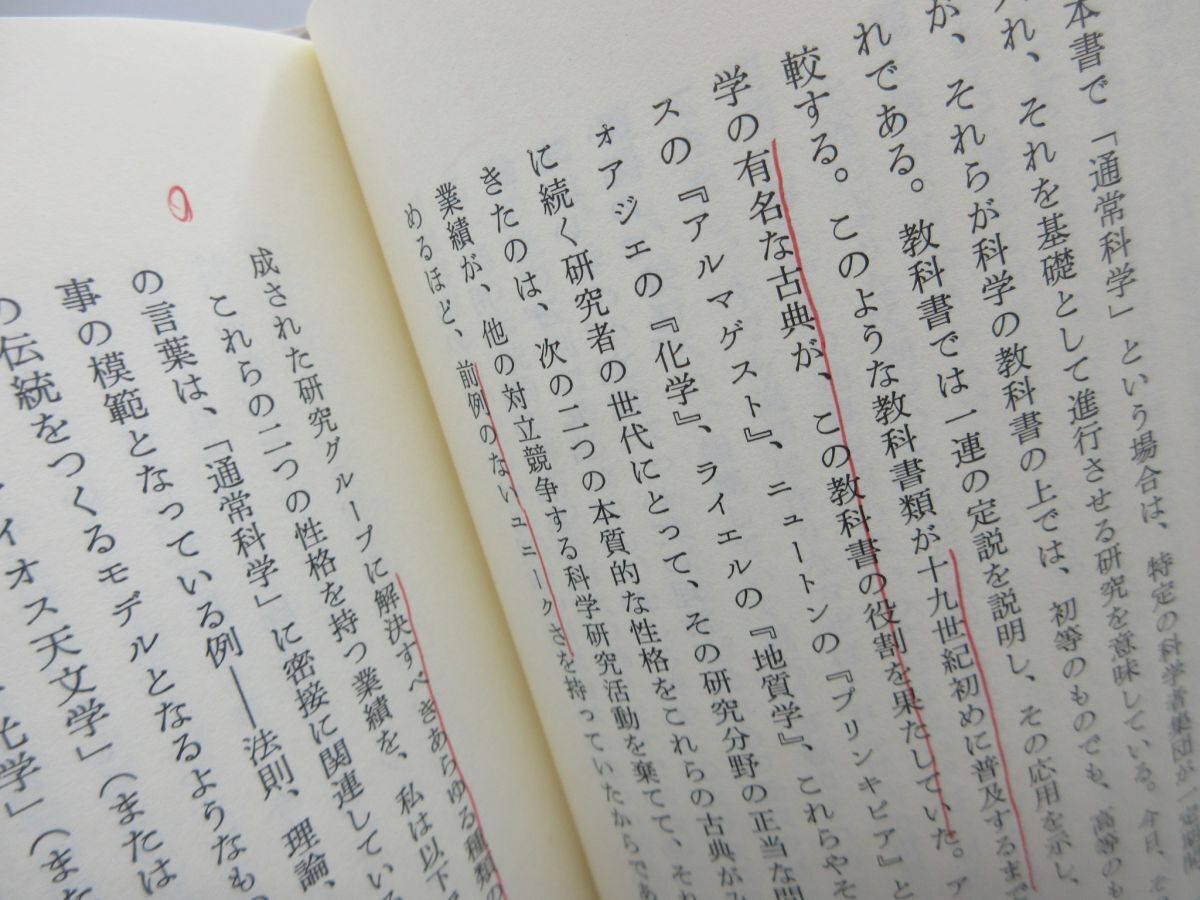 本書で「通常科学」という場合は、特定の科学者集団が
れ、それを基礎として進行させる研究を意味している。今日、
が、それらが科学の教科書の上では、初等のものでも、高等のも
れである。教科書では一連の定説を説明し、その応用を示し、
較する。このような教科書類が十九世紀初めに普及するまで
学の有名な古典が、この教科書の役割を果たしていた。ア
スの『アルマゲスト』、ニュートンの『プリンキピア』と
ォアジェの『化学』、ライエルの『地質学』、これらやそ
に続く研究者の世代にとって、その研究分野の正当な問
きたのは、次の二つの本質的な性格をこれらの古典がみ
業績が、他の対立競争する科学研究活動を棄てて、それ
めるほど、前例のないユニークさを持っていたからであ
成された研究グループに解決すべきあらゆる種類の
これらの二つの性格を持つ業績を、私は以下
の言葉は、「通常科学」に密接に関連している
事の模範となっている例――法則、理論、
の伝統をつくるモデルとなるようなも
イオス天文学」(または
光学」(また